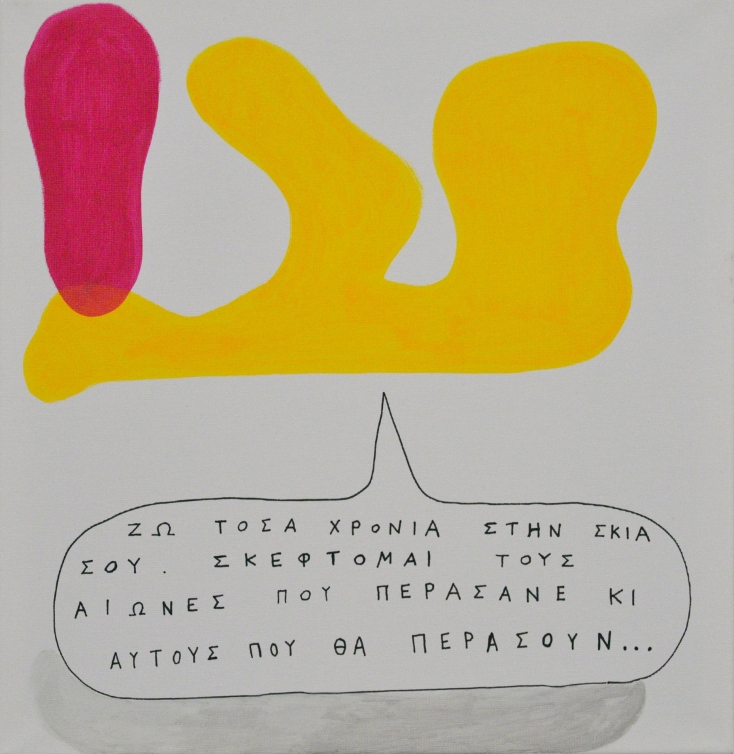 ΖΩ ΤΟΣΑ ΧΡΟΝΙΑ ΣΤΗΝ ΣΚΙΑ
ΣΟΥ. ΣΚΕΦΤΟΜΑΙ ΤΟΥΣ
ΑΙΩΝΕΣ ΠΟΥ ΠΕΡΑΣΑΝΕ ΚΙ
ΑΥΤΟΥΣ ΠΟΥ ΘΑ ΠΕΡΑΣΟΥΝ...